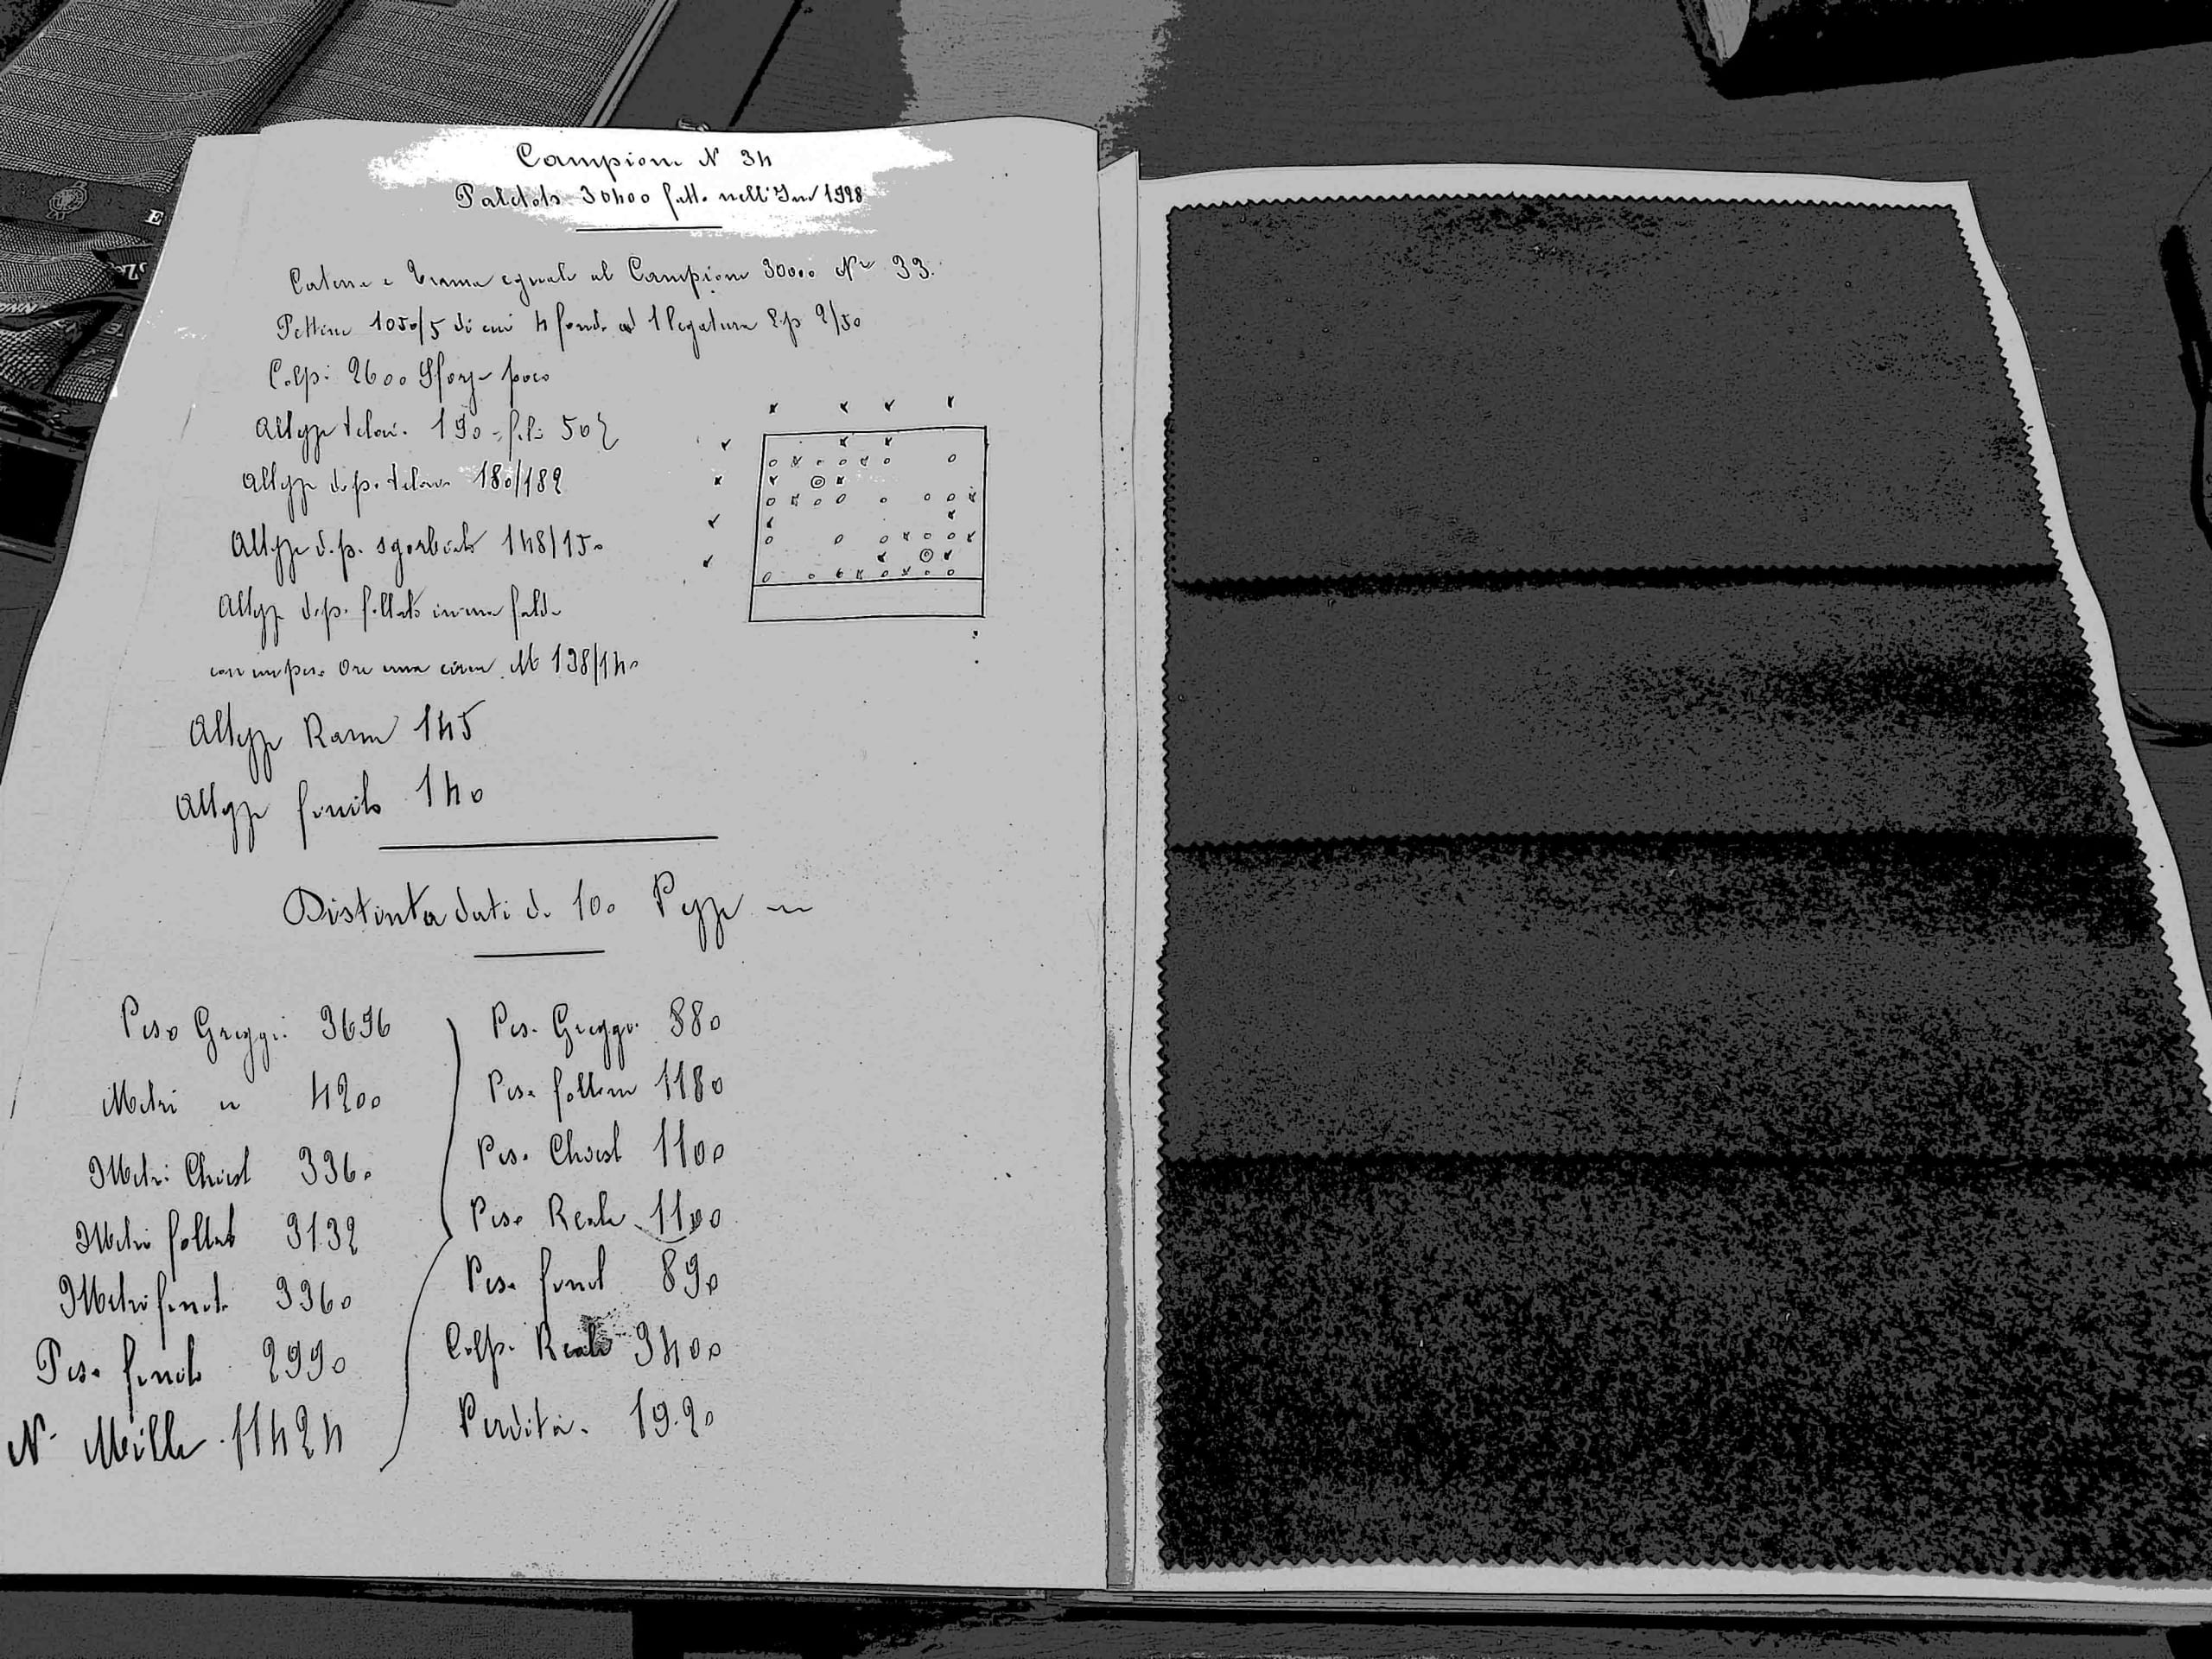 Campione N 34
Paletots 30400 fatto nell'Inv 1928
Catena e Trama eguale al Campione 30000 Nº 33.
Pettine 1050/5 di cui 4 fondo ed 1 legatura 2/50
Colpi 2600 Sforzo poco
Altezza telaio 190 - fili 50
Altezza dopo telaio 180/182
Altezza d.p. sgorbiato 148/150
Altezza dopo follato in una falda
con un peso Ore una circa M 138/140
Altezza Rame 145
Altezza finito 140
Distinta dati di 10 Pezze
Peso Greggi 3696
Metri " 4200
Metri Chiest 3360
Metri follati 3132
Metri finiti 3360
Peso finito 2990
N. Mille 11424
Peso Greggo 880
Peso follone 1180
Peso Chiest 1100
Peso Reale 1100
Peso finit 890
Colpi Reali 3400
Perdita 19.20